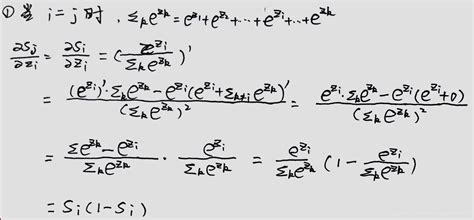 ① 当 i=j 时, Σₖe^{zₖ} = e^{z₁}+e^{z₂}+…+e^{zᵢ}+…+e^{zₖ}
∂Sⱼ/∂zᵢ = ∂Sᵢ/∂zᵢ = (e^{zᵢ}/Σₖe^{zₖ})′
= ((e^{zᵢ})′·Σₖe^{zₖ} − e^{zᵢ}(e^{zᵢ}+Σₖ≠ᵢe^{zₖ})′)/(Σₖe^{zₖ})² = (e^{zᵢ}·Σₖe^{zₖ} − e^{zᵢ}(e^{zᵢ}+0))/(Σₖe^{zₖ})²
= (Σe^{zₖ} − e^{zᵢ})/Σₖe^{zₖ} · e^{zᵢ}/Σₖe^{zₖ} = e^{zᵢ}/Σₖe^{zₖ} (1 − e^{zᵢ}/Σₖe^{zₖ})
= Sᵢ(1−Sᵢ)